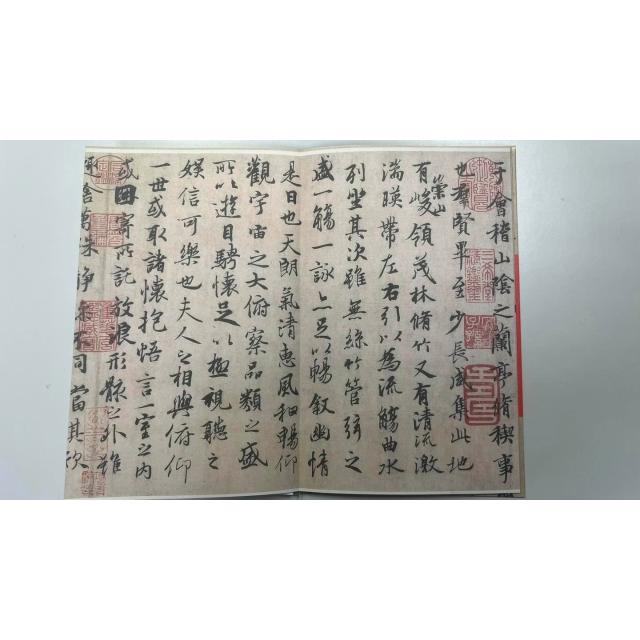 于會稽山陰之蘭亭脩稧事
也羣賢畢至少長咸集此地
有崇山峻領茂林脩竹又有清流激
湍暎帶左右引以為流觴曲水
列坐其次雖無絲竹管弦之
盛一觴一詠亦足以暢敘幽情
是日也天朗氣清惠風和暢仰
觀宇宙之大俯察品類之盛
所以遊目騁懷足以極視聽之
娛信可樂也夫人之相與俯仰
一世或取諸懷抱悟言一室之內
或因寄所託放浪形骸之外雖
趣舍萬殊靜躁不同當其欣